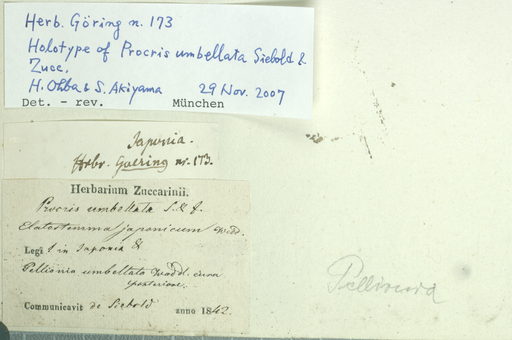 Herb. Göring n. 173
Holotype of Procris umbellata Siebold &
Zucc.
H. Ohba & S. Akiyama 29 Nov. 2007
Det. - rev. München
Japonia.
Herbr. Goering nr. 173.
Herbarium Zuccarinii.
Procris umbellata S. & Z.
Elatostemma japonicum Wedd.
Legi in Japonia
Pellionia umbellata Wedd.
posteriore.
Communicavit de Siebold anno 1842.